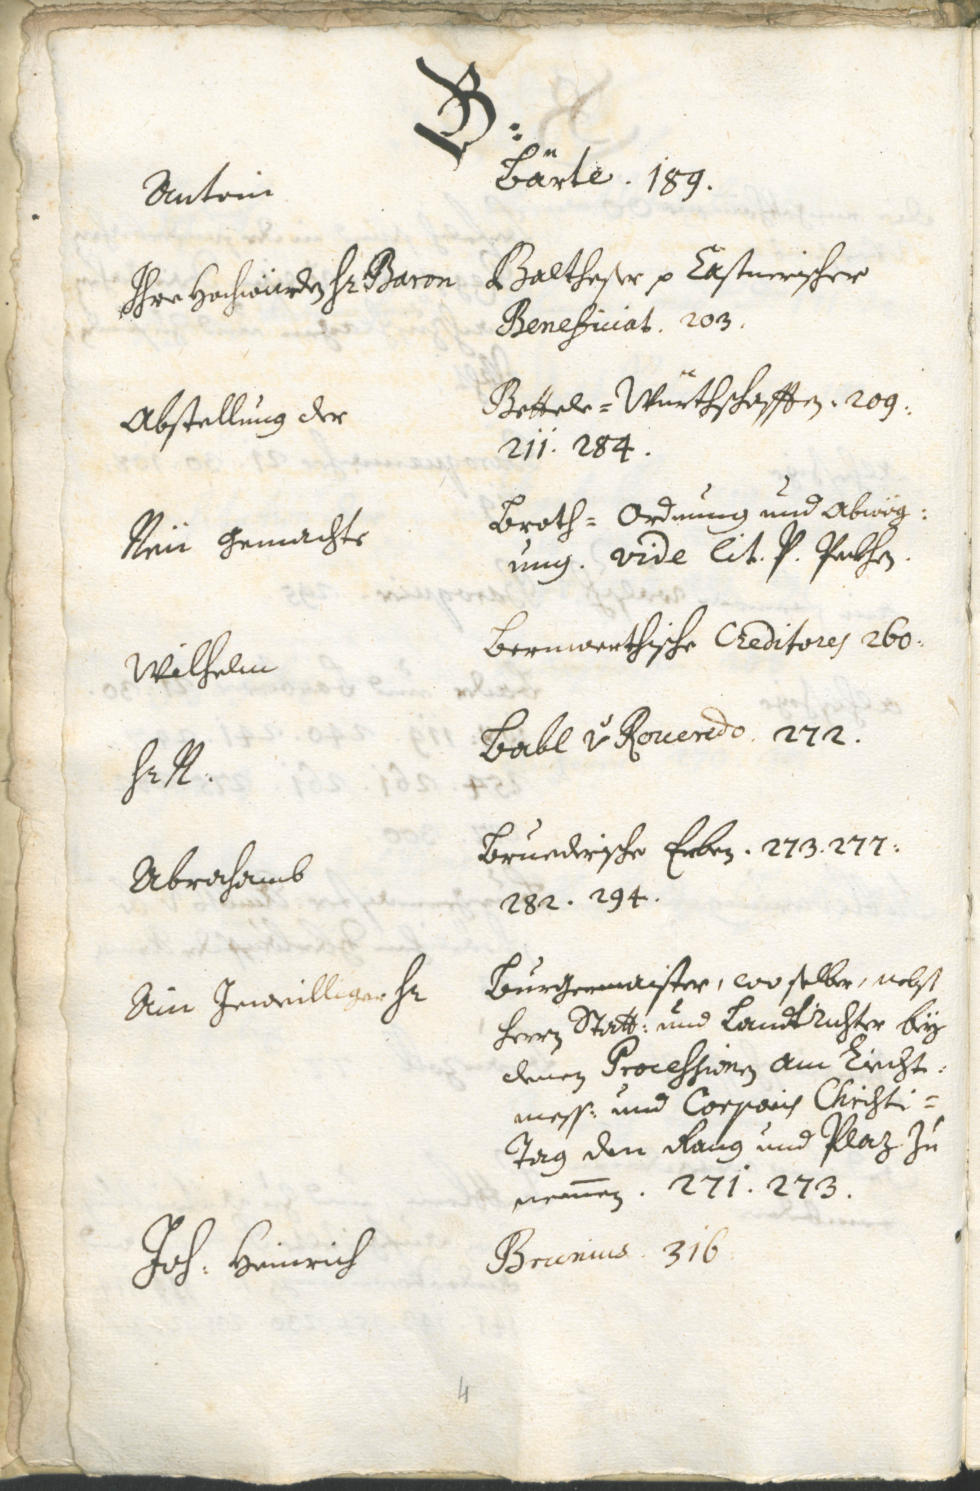 B:
Antoin Bärte. 189.
Ihre Hochwürden Hr Baron Balthesser p Castnerischer
Beneficiat. 203.
Abstellung der Bettele-Würthschafften. 209:
211. 284.
Neü gemachte Broth-Ordnung und Abwög:
ung. vide lit. P. Pekhen.
Wilhelm Bermoerthische Creditores 260.
Hr N. Babl v Roveredo. 272.
Abrahamb Bruederische Erben. 273. 277:
282. 294.
Ain Jeweilliger Hr Burgermaister, wo selber, nebst
Herrn Statt: und Landtrichter bey
denen Processionen am Liecht:
mess: und Corporis Christi=
Tag den Rang und Plaz zu
nemmen. 271. 273.
Joh: Heinrich Brunius. 316
4